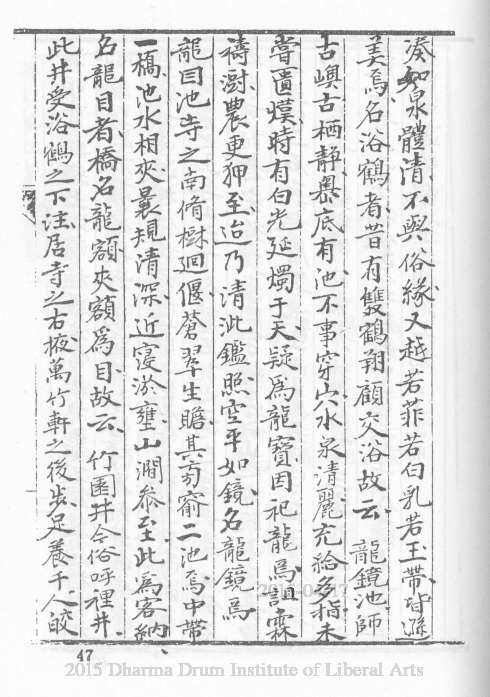 湊如泉體清不與俗緣又越若菲若白乳若玉帶皆遜
美焉名浴鶴者昔有雙鶴翔顧交浴故云 龍鏡池師
古嶼古栖靜巖底有池不事穿穴水泉清麗充給多指未
嘗匱熯時有白光延燭于天疑為龍寶因祀龍為詛霖
禱澍農更狎至迨乃清泚鑑照空平如鏡名龍鏡為
龍目池寺之南脩樹迴偃蒼翠生瞻其旁窬二池焉中帶
一橋池水相夾曩規清深近寖淤壅山澗叅至此為客納
名龍目者橋名龍額夾額為目故云 竹園井今俗呼裡井
此井受浴鶴之下注居寺之右掖萬竹軒之後步足養千人皎
47
2015 Dharma Drum Institute of Liberal Arts